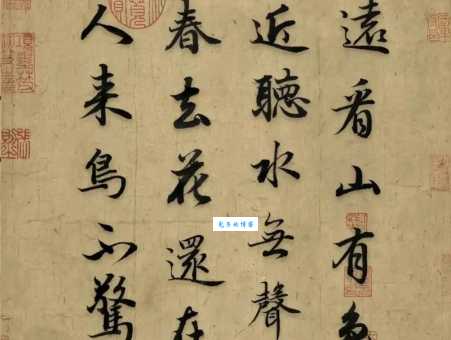 遠看山有色
近聽水無聲
春去花還在
人来鳥不驚